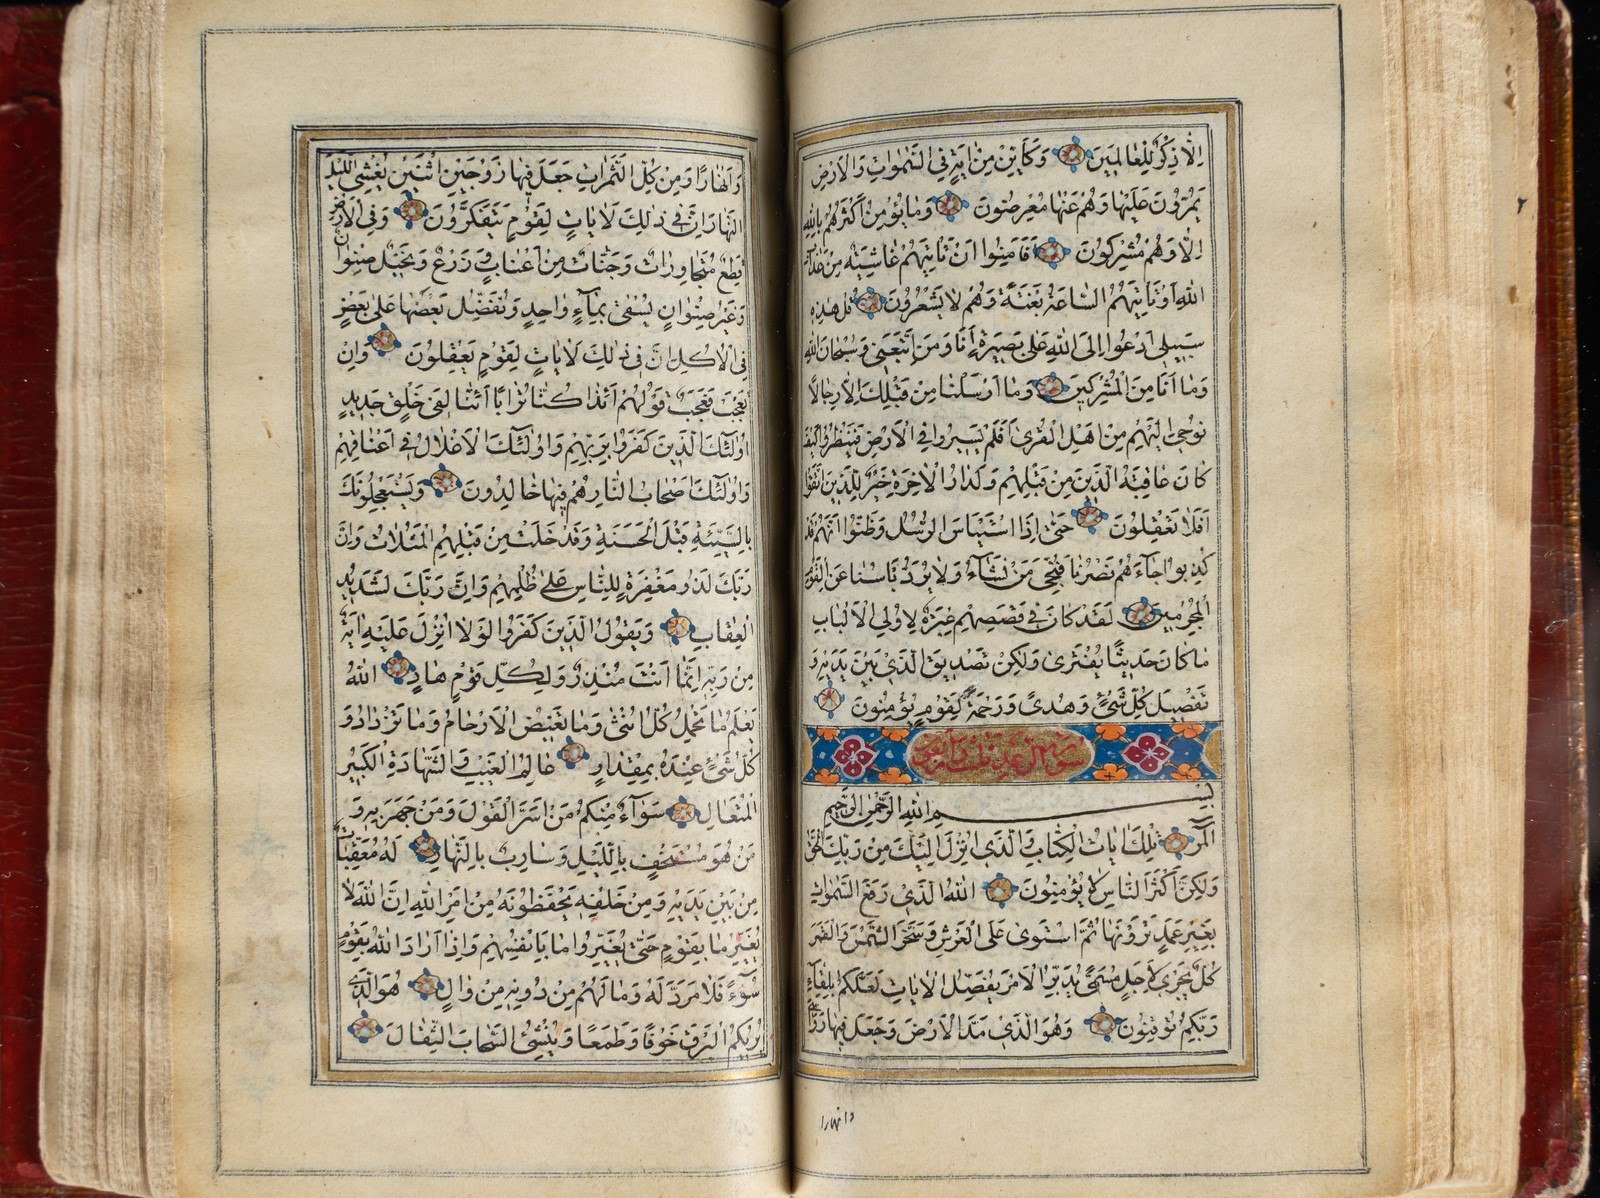 اِلَّا ذِكْرٌ لِلْعَالَمِينَ وَكَاَيِّنْ مِنْ اٰيَةٍ فِي السَّمٰوَاتِ وَالْاَرْضِ
يَمُرُّونَ عَلَيْهَا وَهُمْ عَنْهَا مُعْرِضُونَ وَمَا يُؤْمِنُ اَكْثَرُهُمْ بِاللّٰهِ
اِلَّا وَهُمْ مُشْرِكُونَ اَفَاَمِنُوا اَنْ تَاْتِيَهُمْ غَاشِيَةٌ مِنْ عَذَابِ
اللّٰهِ اَوْ تَاْتِيَهُمُ السَّاعَةُ بَغْتَةً وَهُمْ لَا يَشْعُرُونَ قُلْ هٰذِهِ
سَبِيلِي اَدْعُوا اِلَى اللّٰهِ عَلٰى بَصِيرَةٍ اَنَا وَمَنِ اتَّبَعَنِي وَسُبْحَانَ اللّٰهِ
وَمَا اَنَا مِنَ الْمُشْرِكِينَ وَمَا اَرْسَلْنَا مِنْ قَبْلِكَ اِلَّا رِجَالًا
نُوحِي اِلَيْهِمْ مِنْ اَهْلِ الْقُرٰى اَفَلَمْ يَسِيرُوا فِي الْاَرْضِ فَيَنْظُرُوا كَيْفَ
كَانَ عَاقِبَةُ الَّذِينَ مِنْ قَبْلِهِمْ وَلَدَارُ الْاٰخِرَةِ خَيْرٌ لِلَّذِينَ اتَّقَوْا
اَفَلَا تَعْقِلُونَ حَتّٰى اِذَا اسْتَيْاَسَ الرُّسُلُ وَظَنُّوا اَنَّهُمْ قَدْ
كُذِبُوا جَاءَهُمْ نَصْرُنَا فَنُجِّيَ مَنْ نَشَاءُ وَلَا يُرَدُّ بَاْسُنَا عَنِ الْقَوْمِ
الْمُجْرِمِينَ لَقَدْ كَانَ فِي قَصَصِهِمْ عِبْرَةٌ لِاُولِي الْاَلْبَابِ
مَا كَانَ حَدِيثًا يُفْتَرٰى وَلٰكِنْ تَصْدِيقَ الَّذِي بَيْنَ يَدَيْهِ وَ
تَفْصِيلَ كُلِّ شَيْءٍ وَهُدًى وَرَحْمَةً لِقَوْمٍ يُؤْمِنُونَ
بِسْمِ اللّٰهِ الرَّحْمٰنِ الرَّحِيمِ
الٓمٓرٰ تِلْكَ اٰيَاتُ الْكِتَابِ وَالَّذِي اُنْزِلَ اِلَيْكَ مِنْ رَبِّكَ الْحَقُّ
وَلٰكِنَّ اَكْثَرَ النَّاسِ لَا يُؤْمِنُونَ اَللّٰهُ الَّذِي رَفَعَ السَّمٰوَاتِ
بِغَيْرِ عَمَدٍ تَرَوْنَهَا ثُمَّ اسْتَوٰى عَلَى الْعَرْشِ وَسَخَّرَ الشَّمْسَ وَالْقَمَرَ
كُلٌّ يَجْرِي لِاَجَلٍ مُسَمًّى يُدَبِّرُ الْاَمْرَ يُفَصِّلُ الْاٰيَاتِ لَعَلَّكُمْ بِلِقَاءِ
رَبِّكُمْ تُوقِنُونَ وَهُوَ الَّذِي مَدَّ الْاَرْضَ وَجَعَلَ فِيهَا رَوَاسِيَ
وانهارا
وَاَنْهَارًا وَمِنْ كُلِّ الثَّمَرَاتِ جَعَلَ فِيهَا زَوْجَيْنِ اثْنَيْنِ يُغْشِي اللَّيْلَ
النَّهَارَ اِنَّ فِي ذٰلِكَ لَاٰيَاتٍ لِقَوْمٍ يَتَفَكَّرُونَ وَفِي الْاَرْضِ
قِطَعٌ مُتَجَاوِرَاتٌ وَجَنَّاتٌ مِنْ اَعْنَابٍ وَزَرْعٌ وَنَخِيلٌ صِنْوَانٌ
وَغَيْرُ صِنْوَانٍ يُسْقٰى بِمَاءٍ وَاحِدٍ وَنُفَضِّلُ بَعْضَهَا عَلٰى بَعْضٍ
فِي الْاُكُلِ اِنَّ فِي ذٰلِكَ لَاٰيَاتٍ لِقَوْمٍ يَعْقِلُونَ وَاِنْ
تَعْجَبْ فَعَجَبٌ قَوْلُهُمْ ءَاِذَا كُنَّا تُرَابًا ءَاِنَّا لَفِي خَلْقٍ جَدِيدٍ
اُولٰئِكَ الَّذِينَ كَفَرُوا بِرَبِّهِمْ وَاُولٰئِكَ الْاَغْلَالُ فِي اَعْنَاقِهِمْ
وَاُولٰئِكَ اَصْحَابُ النَّارِ هُمْ فِيهَا خَالِدُونَ وَيَسْتَعْجِلُونَكَ
بِالسَّيِّئَةِ قَبْلَ الْحَسَنَةِ وَقَدْ خَلَتْ مِنْ قَبْلِهِمُ الْمَثُلَاتُ وَاِنَّ
رَبَّكَ لَذُو مَغْفِرَةٍ لِلنَّاسِ عَلٰى ظُلْمِهِمْ وَاِنَّ رَبَّكَ لَشَدِيدُ
الْعِقَابِ وَيَقُولُ الَّذِينَ كَفَرُوا لَوْلَا اُنْزِلَ عَلَيْهِ اٰيَةٌ
مِنْ رَبِّهِ اِنَّمَا اَنْتَ مُنْذِرٌ وَلِكُلِّ قَوْمٍ هَادٍ اَللّٰهُ
يَعْلَمُ مَا تَحْمِلُ كُلُّ اُنْثٰى وَمَا تَغِيضُ الْاَرْحَامُ وَمَا تَزْدَادُ وَ
كُلُّ شَيْءٍ عِنْدَهُ بِمِقْدَارٍ عَالِمُ الْغَيْبِ وَالشَّهَادَةِ الْكَبِيرُ
الْمُتَعَالِ سَوَاءٌ مِنْكُمْ مَنْ اَسَرَّ الْقَوْلَ وَمَنْ جَهَرَ بِهِ وَ
مَنْ هُوَ مُسْتَخْفٍ بِاللَّيْلِ وَسَارِبٌ بِالنَّهَارِ لَهُ مُعَقِّبَاتٌ
مِنْ بَيْنِ يَدَيْهِ وَمِنْ خَلْفِهِ يَحْفَظُونَهُ مِنْ اَمْرِ اللّٰهِ اِنَّ اللّٰهَ لَا
يُغَيِّرُ مَا بِقَوْمٍ حَتّٰى يُغَيِّرُوا مَا بِاَنْفُسِهِمْ وَاِذَا اَرَادَ اللّٰهُ بِقَوْمٍ
سُوءًا فَلَا مَرَدَّ لَهُ وَمَا لَهُمْ مِنْ دُونِهِ مِنْ وَالٍ هُوَ الَّذِي
يُرِيكُمُ الْبَرْقَ خَوْفًا وَطَمَعًا وَيُنْشِئُ السَّحَابَ الثِّقَالَ